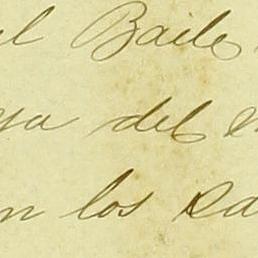 el Baile
ya del
n los sa